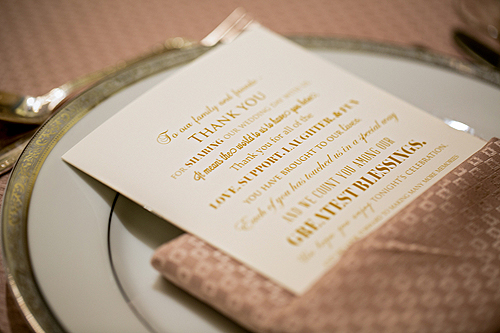 To our family and friends
THANK YOU
FOR SHARING OUR WEDDING DAY WITH US.
It means the world to us to have you here.
Thank you for all of the
LOVE, SUPPORT, LAUGHTER, & FUN
YOU HAVE BROUGHT TO OUR lives.
Each of you has touched us in a special way
AND WE COUNT YOU AMONG OUR
GREATEST BLESSINGS.
We hope you enjoy TONIGHT'S CELEBRATION.
TO MAKING MANY MORE MEMORIES